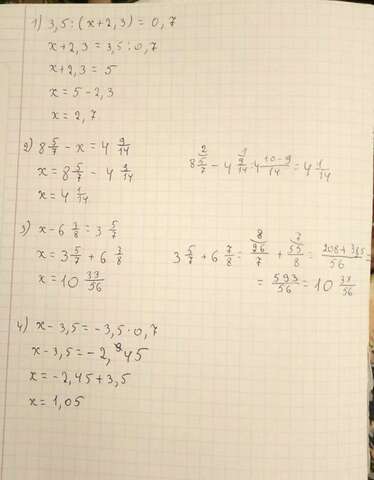 1) 3,5 : (x + 2,3) = 0,7
x + 2,3 = 3,5 : 0,7
x + 2,3 = 5
x = 5 - 2,3
x = 2,7
2) 8 5/7 - x = 4 9/14
x = 8 5/7 - 4 9/14
x = 4 1/14
8 5/7 - 4 9/14 = 4 10-9/14 = 4 1/14
3) x - 6 7/8 = 3 5/7
x = 3 5/7 + 6 7/8
x = 10 33/56
3 5/7 + 6 7/8 = 26/7 + 55/8 = 208+385/56 =
= 593/56 = 10 33/56
4) x - 3,5 = -3,5 · 0,7
x - 3,5 = -2,45
x = -2,45 + 3,5
x = 1,05